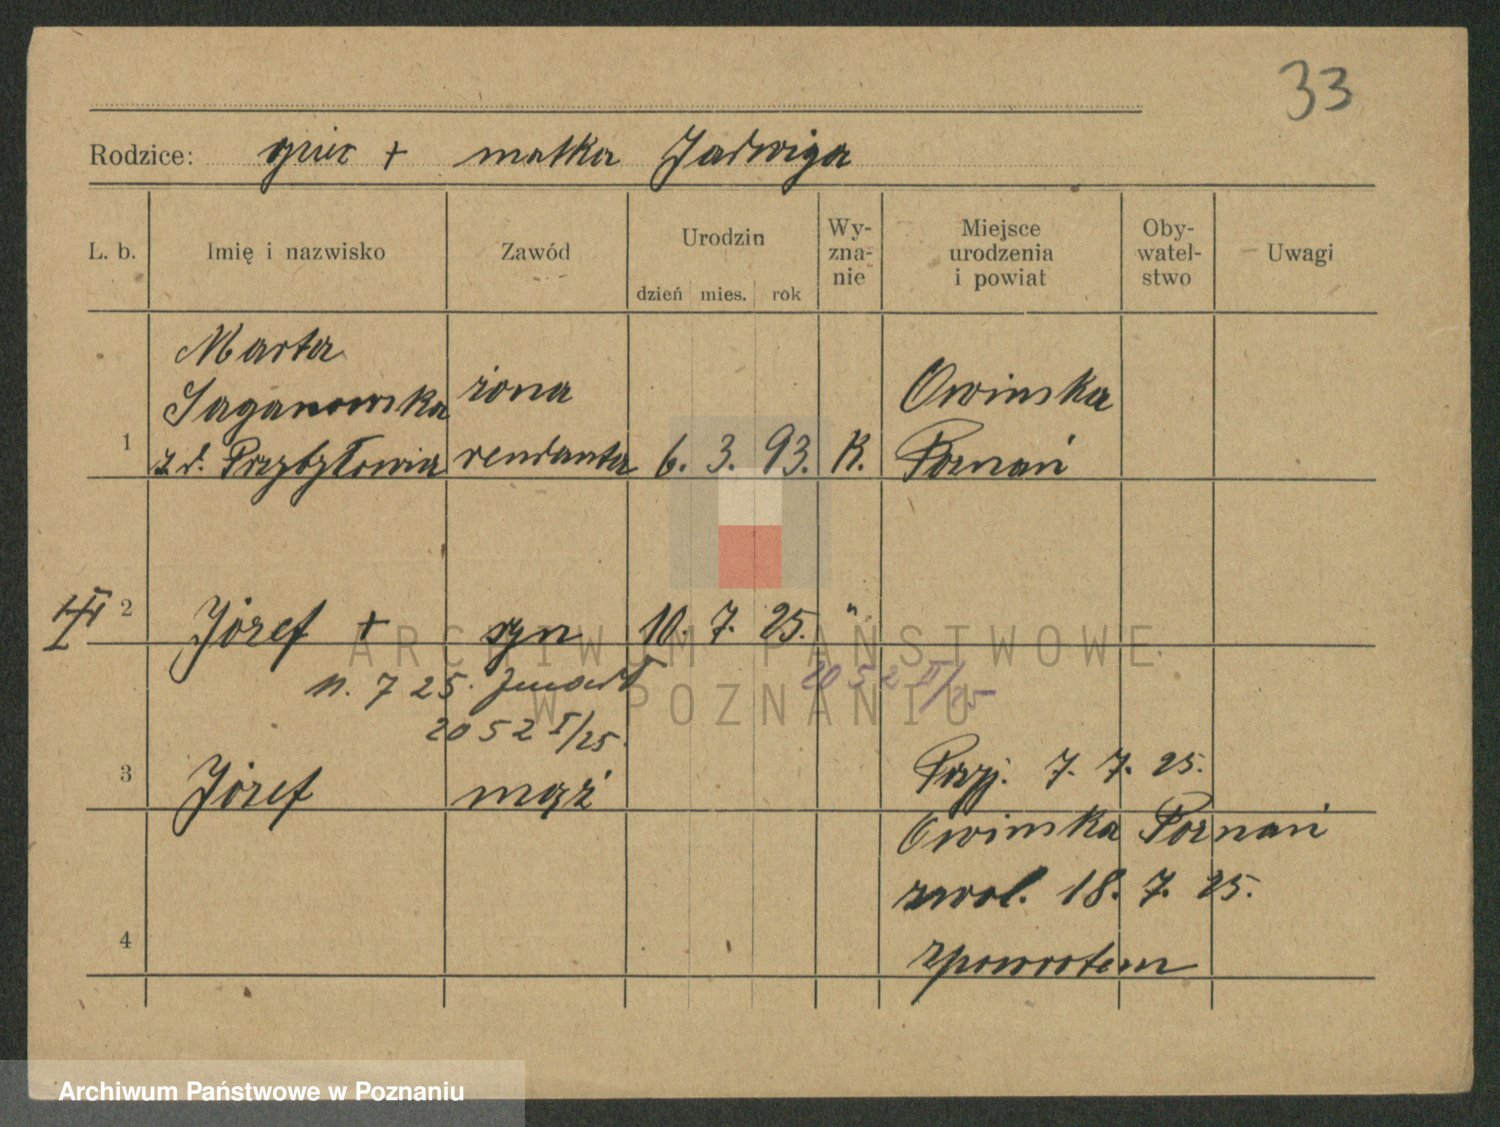 33
Rodzice: ojciec + matka Jadwiga
L. b. Imię i nazwisko Zawód Urodzin dzień mies. rok Wy-zna-nie Miejsce urodzenia i powiat Oby-watel-stwo Uwagi
Marta
Saganowska żona Owinska
1 z d. rendanta 6. 3. 93. K. Poznań
2 Józef + syn 10. 7. 25. "
7 25. zmarł 2052 II/25
2052 I/25.
3 Józef mąż Przyj. 7. 7. 25.
Owinska Poznań
zwol. 18. 7. 25.
4 zpowrotem
ARCHIWUM PAŃSTWOWE
W POZNANIU
Archiwum Państwowe w Poznaniu